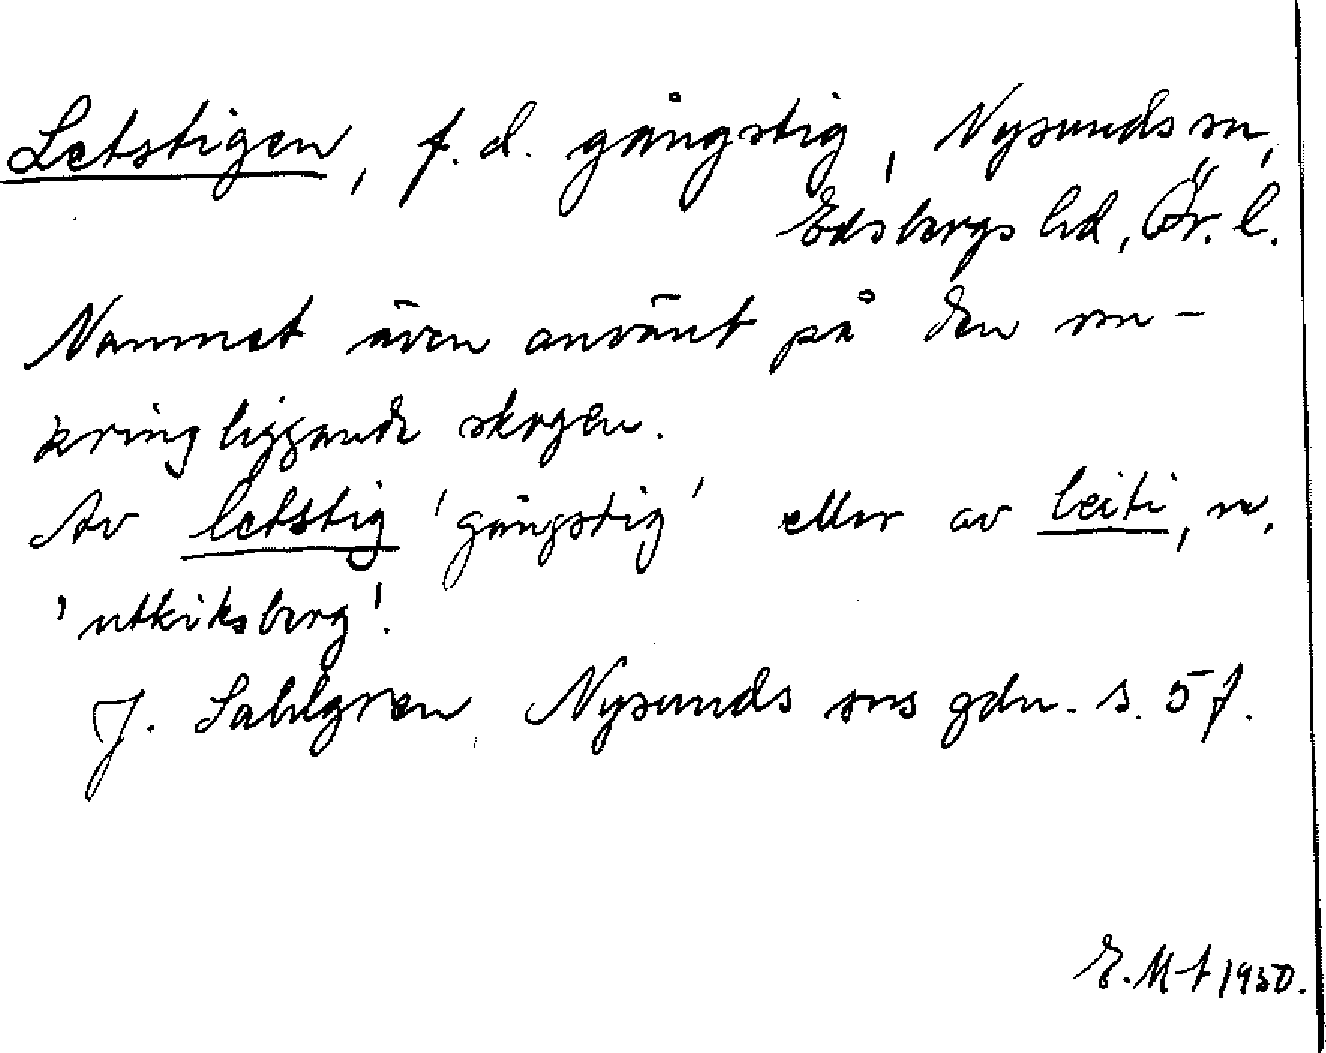 Letstigen, f.d. gångstig, Nysunds sn,
Edsbergs hd, Ör. l.
Namnet även använt på den om-
kringliggande skogen.
Av letstig 'gångstig' eller av leiti, n,
'utkiksberg'.
J. Sahlgren Nysunds sns gdn. s. 5 f.
E. M-t 1950.